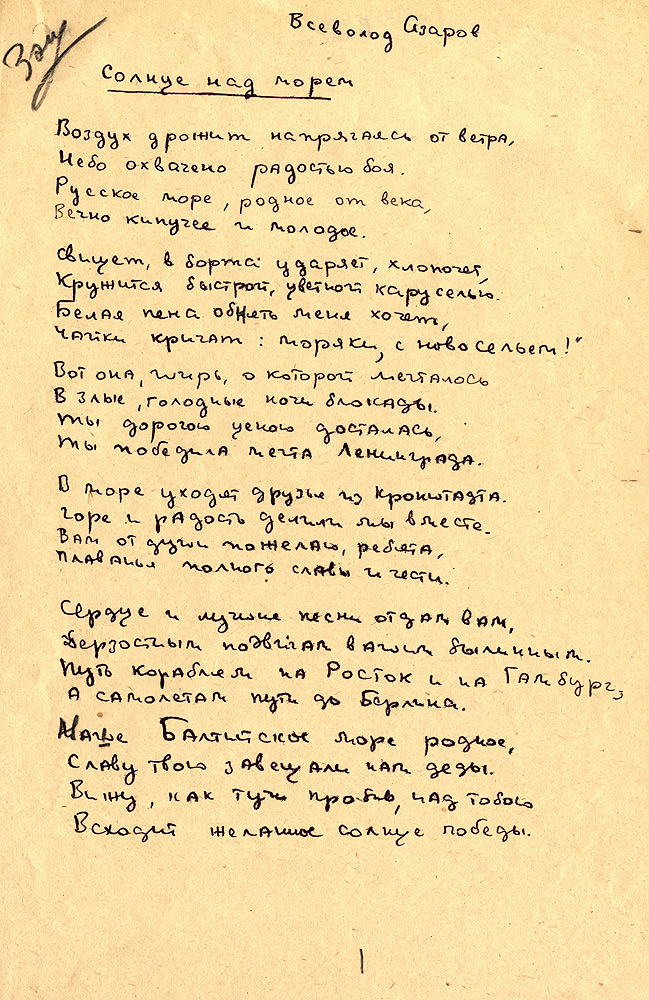 Всеволод Азаров
Зэи
Солнце над морем
Воздух дрожит напрягаясь от ветра,
Небо охвачено радостью боя.
Русское море, родное от века,
Вечно кипучее и молодое.
Свищет, в борта ударяет, хлопочет,
Кружится быстрой, цветной каруселью.
Белая пена обнять меня хочет,
Чайки кричат: моряки, с новосельем!"
Вот она, ширь, о которой мечталось
В злые, голодные ночи блокады.
Ты дорогою ценою досталась,
Ты победила мечта Ленинграда.
В море уходят друзья из Кронштадта.
Горе и радость делили мы вместе.
Вам от души пожелаю, ребята,
Плаванья полного славы и чести.
Сердце и лучшие песни отдам вам,
Дерзостным подвигам вашим былинным.
Путь кораблем на Росток и на Гамбург,
А самолетам пути до Берлина.
Наше Балтийское море родное,
Славу твою завещали нам деды.
Вижу, как тучи пробив, над тобою
Всходит желанное солнце победы.
1